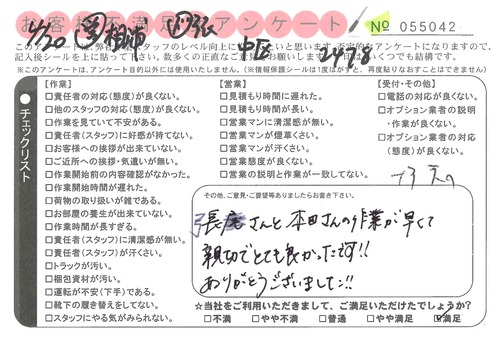 お客様不満足アンケート
№ 055042
4/20
中区
2478
このアンケートは、弊社スタッフのレベル向上に
記入後シールを上に貼って下さい。数多くの正直なご意見お願いします。
※このアンケートは、アンケート目的以外には使用いたしません。(※情報保護シールは1度はがすと、再度貼りなおすことはできません)
チェックリスト
【作業】
□責任者の対応(態度)が良くない。
□他のスタッフの対応(態度)が良くない。
□作業を見ていて不安がある。
□責任者(スタッフ)に好感が持てない。
□お客様への挨拶が出来ていない。
□ご近所への挨拶・気遣いが無い。
□作業開始前の内容確認がなかった。
□作業開始時間が遅れた。
□荷物の取り扱いが雑である。
□お部屋の養生が出来ていない。
□作業時間が長すぎる。
□責任者(スタッフ)に清潔感が無い。
□責任者(スタッフ)が汗くさい。
□トラックが汚い。
□梱包資材が汚い。
□運転が不安(下手)である。
□靴下の履き替えをしてない。
□スタッフにやる気がみられない。
【営業】
□見積もり時間に遅れた。
□見積もり時間が長い。
□営業マンに清潔感が無い。
□営業マンが煙草くさい。
□営業マンが汗くさい。
□営業態度が良くない。
□営業の説明と作業が一致してない。
【受付・その他】
□電話の対応が良くない。
□オプション業者の説明・作業が良くない。
□オプション業者の対応(態度)が良くない。
その他、ご意見・ご要望等ありましたらお書き下さい。
さんと本田さんの作業が早くて
親切でとても良かったです!!
ありがとうございました!!
☆当社をご利用いただきまして、ご満足いただけたでしょうか?
□不満 □やや不満 □普通 □やや満足 ☑満足